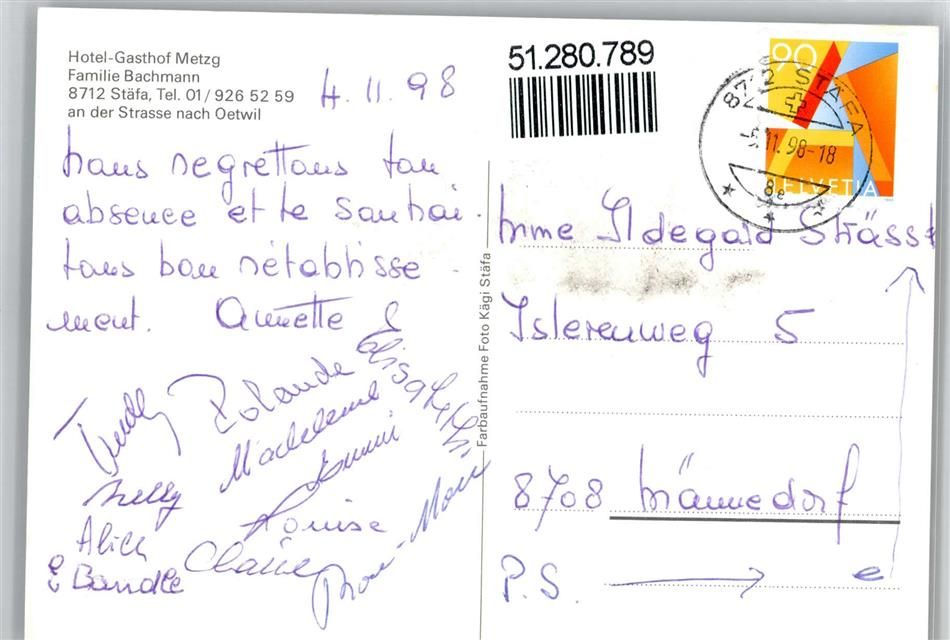 Hotel-Gasthof Metzg
Familie Bachmann
8712 Stäfa, Tel. 01/926 52 59
an der Strasse nach Oetwil
4.11.98
nous regrettons ton
absence et te souhai-
tons bon rétablisse-
ment. Annette &
Elisabeth
Trudy Rolande
Madeleine
Nelly Annie
Alice Louise
Claire
Rose-Marie
51.280.789
90
HELVETIA
8712 STÄFA
-5.11.98-18
8e
Mme Ildegard Sträss
Islerenweg 5
8708 Männedorf
P.S. e
Farbaufnahme Foto Kägi Stäfa